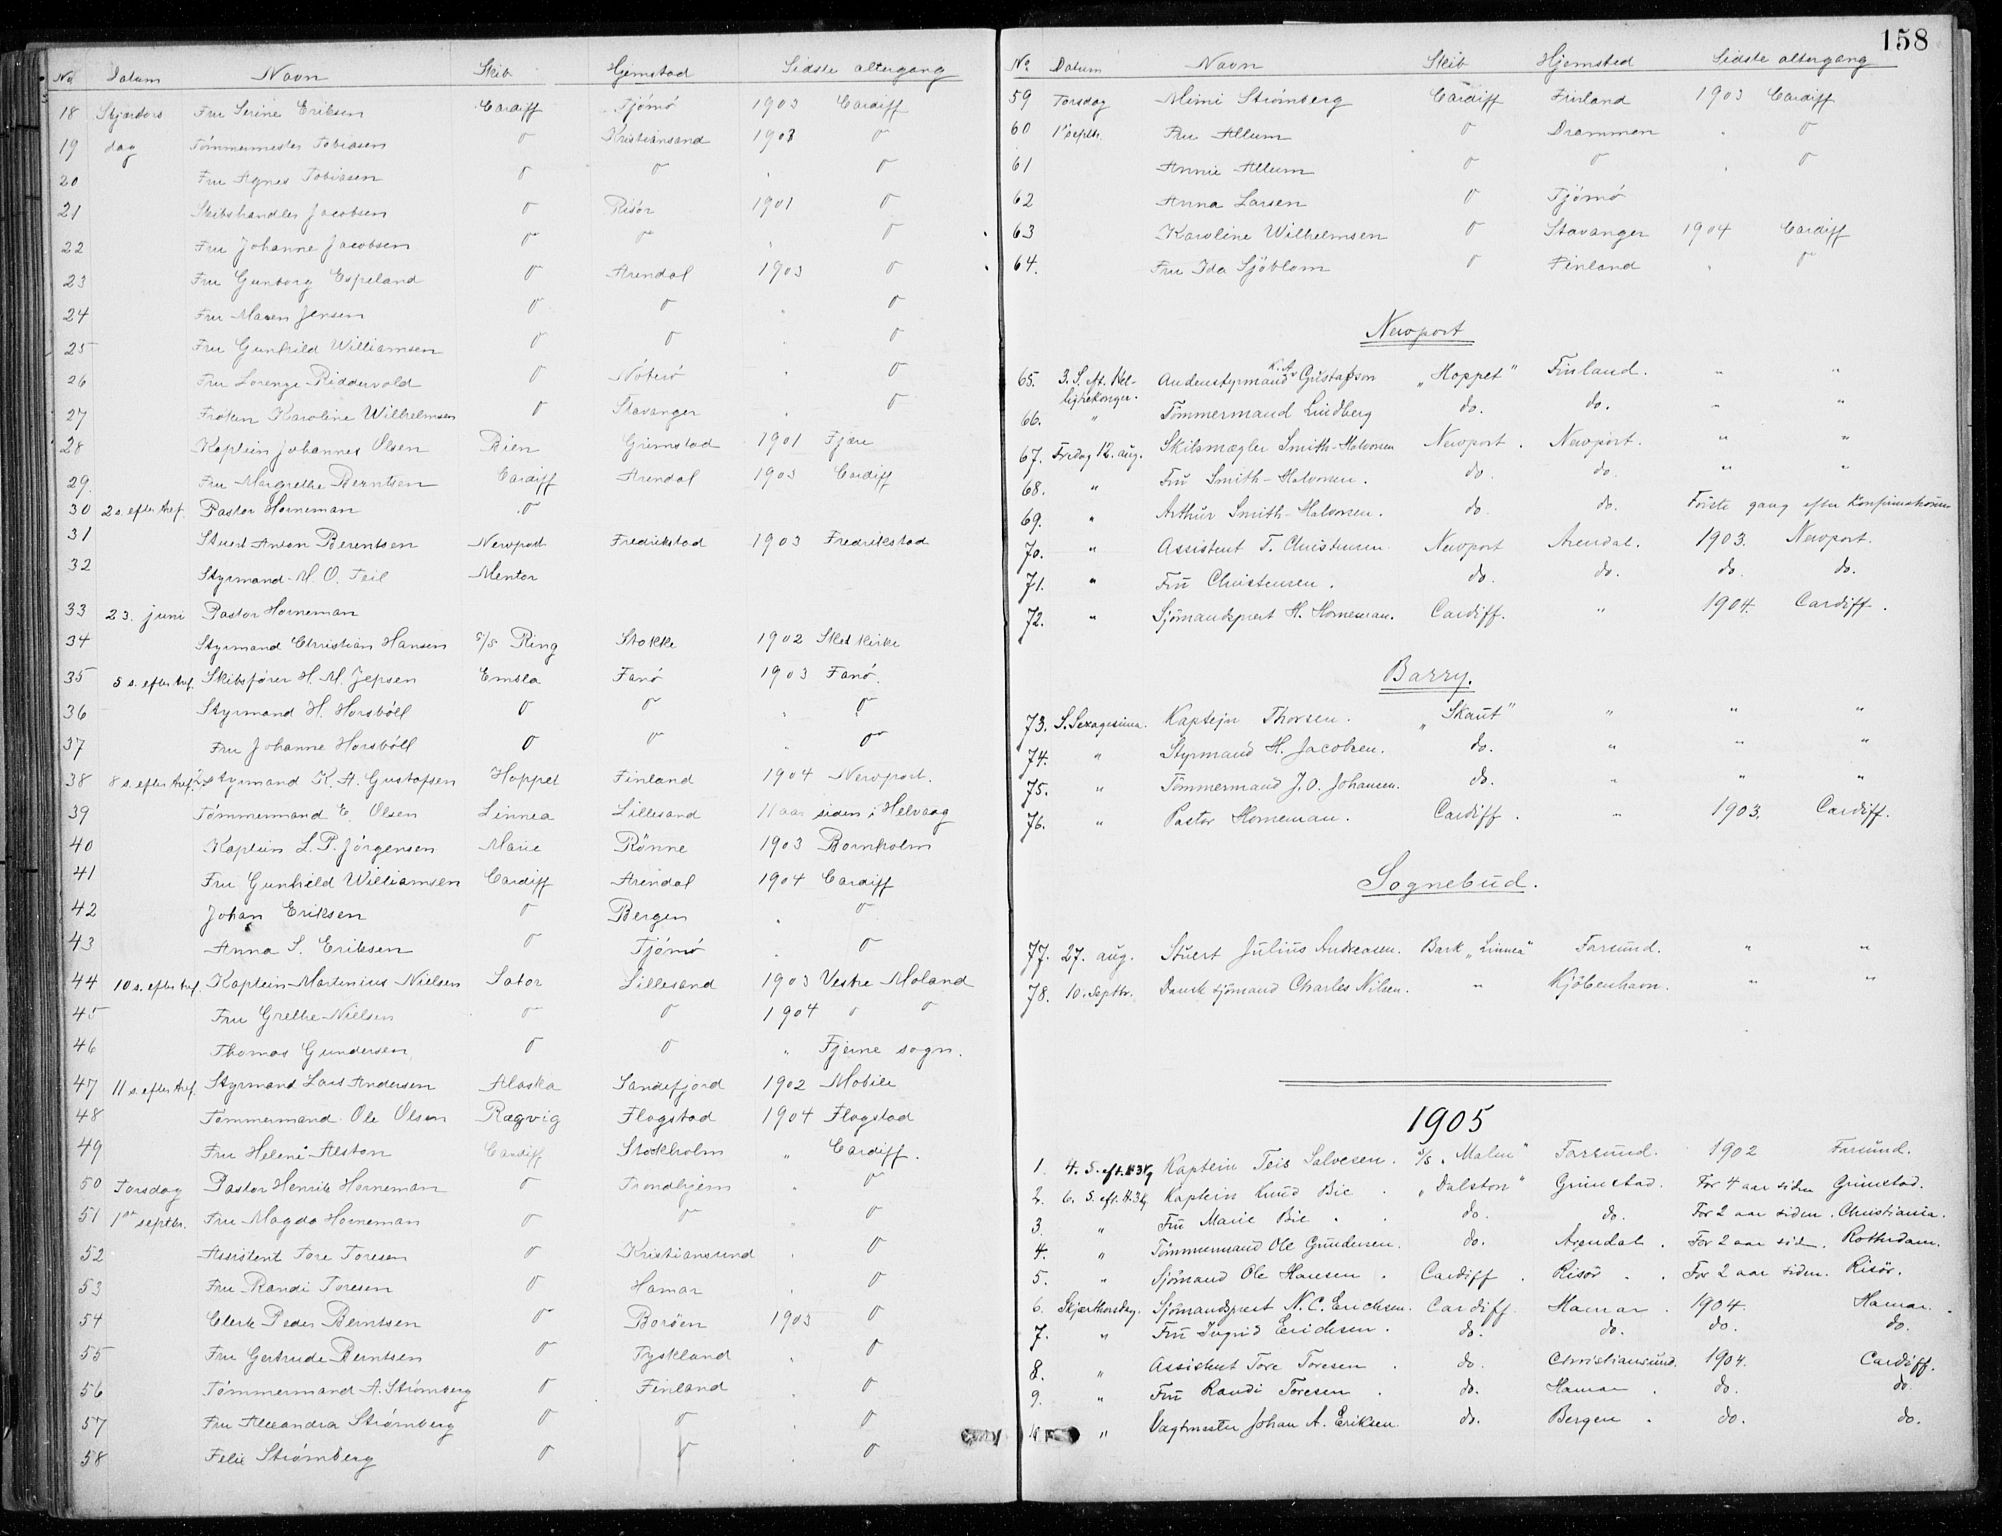 No Datum Navn Skib Hjemstad Sidste altergang
18 Skjærtors Fru Serine Eriksen Cardiff Tjömö 1903 Cardiff
19 dag Tømmermester Tobiasen " Kristiansand 1903 "
20 Fru Agnes Tobiasen " " " "
21 Skibshandler Jacobsen " Risör 1901 "
22 Fru Johanne Jacobsen " " " "
23 Fru Gunborg Espeland " Arendal 1903 "
24 Fru Maren Jensen " " " "
25 Fru Gunhild Williamsen " " " "
26 Fru Lorenze Riddervold " Nöterö " "
27 Frøken Karoline Wilhelmsen " Stavanger " "
28 Kaptein Johannes Olsen Bien Grimstad 1901 Fjære
29. Fru Margrethe Berntsen Cardiff Arendal 1903 Cardiff
30 2 s. efter tref. Pastor Horneman "
31 Stuert Anton Berentsen Newport Fredrikstad 1903 Fredrikstad
32 Styrmand M. O. Feil Mentor
33 23. juni Pastor Horneman
34 Styrmand Christian Hansen s/s Ring Stokke 1902 Skei kirke
35 5 s. efter tref. Skibsfører H. M. Jepsen Emsla Fanö 1903 Fanö.
36 Styrmand H. Horsböll " " " "
37 Fru Johanne Horsböll " " " "
38 8 s. efter tref. 2. styrmand K. A. Gustafsen Hoppet Finland 1904 Newport.
39 Tømmermand E. Olsen Linnea Lillesand 11 aar siden i Helvaag
40 Kaptein L. P. Jörgensen Marie Rönne 1903 Bornholm
41 Fru Gunhild Williamsen Cardiff Arendal 1904 Cardiff
42 Johan Eriksen " Bergen " "
43 Anna S. Eriksen " Tjömö " "
44 10 s. efter tref. Kaptein Martinius Nielsen Sator Lillesand 1903 Vestre Moland
45 Fru Grethe Nielsen " " 1904 " "
46 Thomas Gundersen " " " Fjerne sogn.
47 11 s. efter tref. Styrmand Lars Andersen Alaska Sandefjord 1902 Mobile
48 Tømmermand Ole Olsen Rægvig Flogstad 1904 Flogstad
49 Fru Helene Alston Cardiff Stockholm " Cardiff.
50 Torsdag Pastor Henrik Horneman " Trondhjem " "
51 1ste septbr. Fru Magda Horneman " " " "
52 Assistent Tore Toresen " Kristiansund " "
53 Fru Randi Toresen " Hamar " "
54 Clerk Peder Berntsen " Boröen 1903 "
55 Fru Gertrude Berntsen " Tyskland " "
56 Tømmermand A. Strömberg " Finland " "
57 Fru Alexandra Strömberg " " " "
58 Felix Strömberg " " " "
158
No Datum Navn Skib Hjemsted Sidste altergang
59 Torsdag Mimi Strömberg Cardiff Finland 1903 Cardiff
60 1ste septbr. Fru Allum " Drammen " "
61 Annie Allum " " "
62 Anna Larsen " Tjömö
63 Karoline Wilhelmsen " Stavanger 1904 Cardiff
64. Fru Ida Sjöblom " Finland " "
Newport
65. 3. S. eft. Hel- Andenstyrmand K. A. Gustafson „Hoppet" Finland. " "
ligtrekonger.
66. " Tömmermand Lindberg do. do. " "
67. Fredag 12. aug. Skibsmægler Smith-Halvorsen Newport. Newport. " "
68. " Fru Smith-Halvorsen. do. do. " "
69. " Arthur Smith-Halvorsen. do. do. Förste gang efter Konfirmationen
70. " Assistent T. Christensen Newport Arendal. 1903. Newport.
71. " Fru Christensen. do. do. do. do.
72. " Sjömandsprest H. Horneman. Cardiff. " 1904. Cardiff.
Barry.
73. S. Sexagesima. Kaptejn Thorsen. „Skaut" " " "
74. " Styrmand H. Jacobsen. do. " " "
75. " Tömmermand J. O. Johansen. do. " " "
76. " Pastor Horneman. Cardiff. " 1903. Cardiff.
Sognebud.
77. 27. aug. Stuert Julius Andreasen. Bark „Linnea" Farsund. " "
78. 10. Septbr. Dansk sjömand Charles Nilsen. " Kjöbenhavn. " "
1905
1. 4. S. eft. H3Kg Kaptein Teis Salvesen. s/s „Malin" Farsund. 1902 Farsund.
2. 6. S. eft. H.3Kg Kaptein Knud Bie. „Dalston" Grimstad. For 4 aar siden Grimstad.
3. " Fru Marie Bie. do. do. For 2 aar siden. Christiania.
4. " Tömmermand Ole Gundersen. do. Arendal. For 2 aar sid. Rotterdam.
5. " Sjömand Ole Hansen. Cardiff. Risör. For 2 aar siden. Risör.
6. Skjærthorsdag. Sjömandsprest N. C. Erichsen. Cardiff. Hamar. 1904. Hamar.
7. " Fru Ingrid Erichsen. do. do. do. do.
8. " Assistent Tore Toresen. do. Christiansund. 1904. Cardiff.
9. " Fru Randi Toresen. do. Hamar. do. do.
10 " Vagtmester Johan A. Eriksen. do. Bergen. do. do.